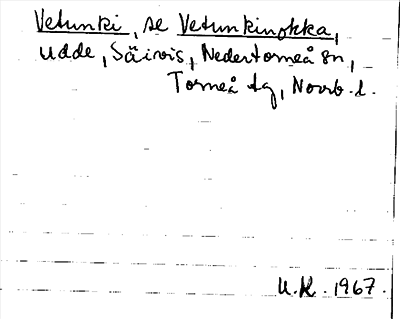 Vetunki, se Vetunkinokka,
udde, Säivis, Nedertorneå sn,
Torneå tg, Norrb. l.
U.K. 1967.